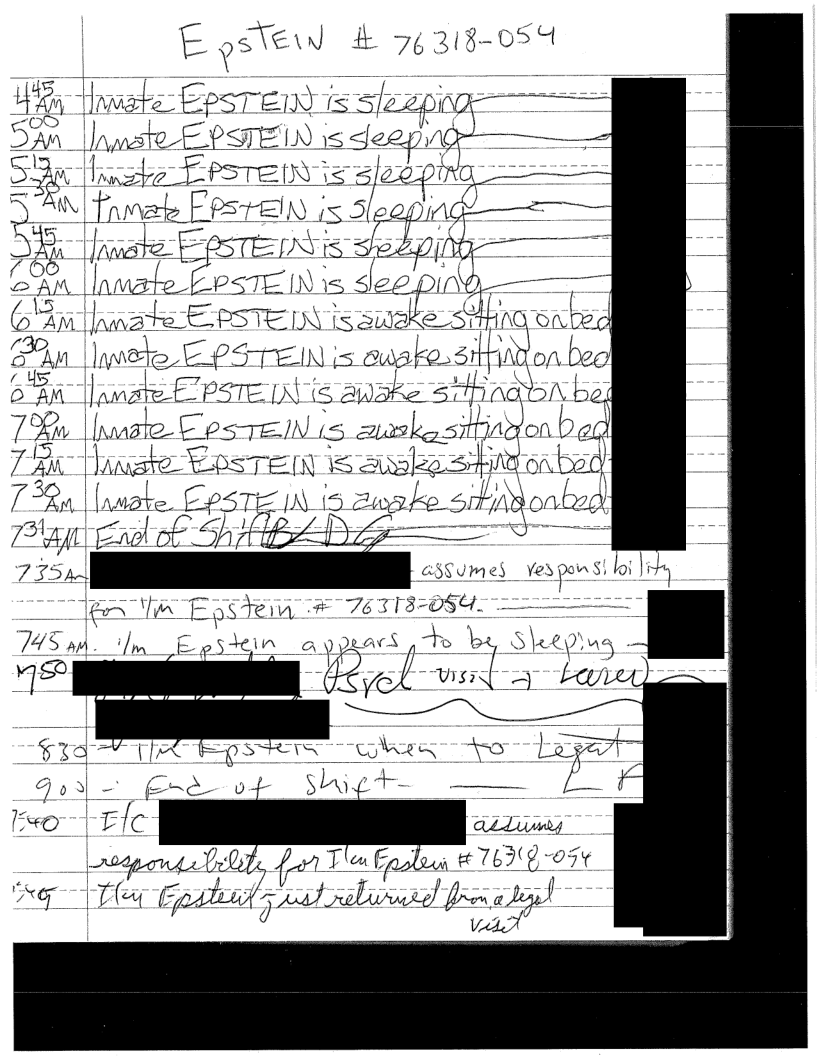 EpSTEIN # 76318-054
4:45 AM Inmate EPSTEIN is sleeping
5:00 AM Inmate EPSTEIN is sleeping
5:15 AM Inmate EPSTEIN is sleeping
5:30 AM Inmate EPSTEIN is sleeping
5:45 AM Inmate EPSTEIN is sleeping
6:00 AM Inmate EPSTEIN is sleeping
6:15 AM Inmate EPSTEIN is awake sitting on bed
6:30 AM Inmate EPSTEIN is awake sitting on bed
6:45 AM Inmate EPSTEIN is awake sitting on bed
7:00 AM Inmate EPSTEIN is awake sitting on bed
7:15 AM Inmate EPSTEIN is awake sitting on bed
7:30 AM Inmate EPSTEIN is awake sitting on bed
7:31 AM End of Shift
735 Am assumes responsibility
for I/m Epstein # 76318-054.
745 AM. I/m Epstein appears to be sleeping
750 Psych visit
830 - I/M Epstein when to Legal
900 - End of shift -
I/C assumes
responsibility for I/m Epstein # 76318-054
I/m Epstein just returned from a legal
visit